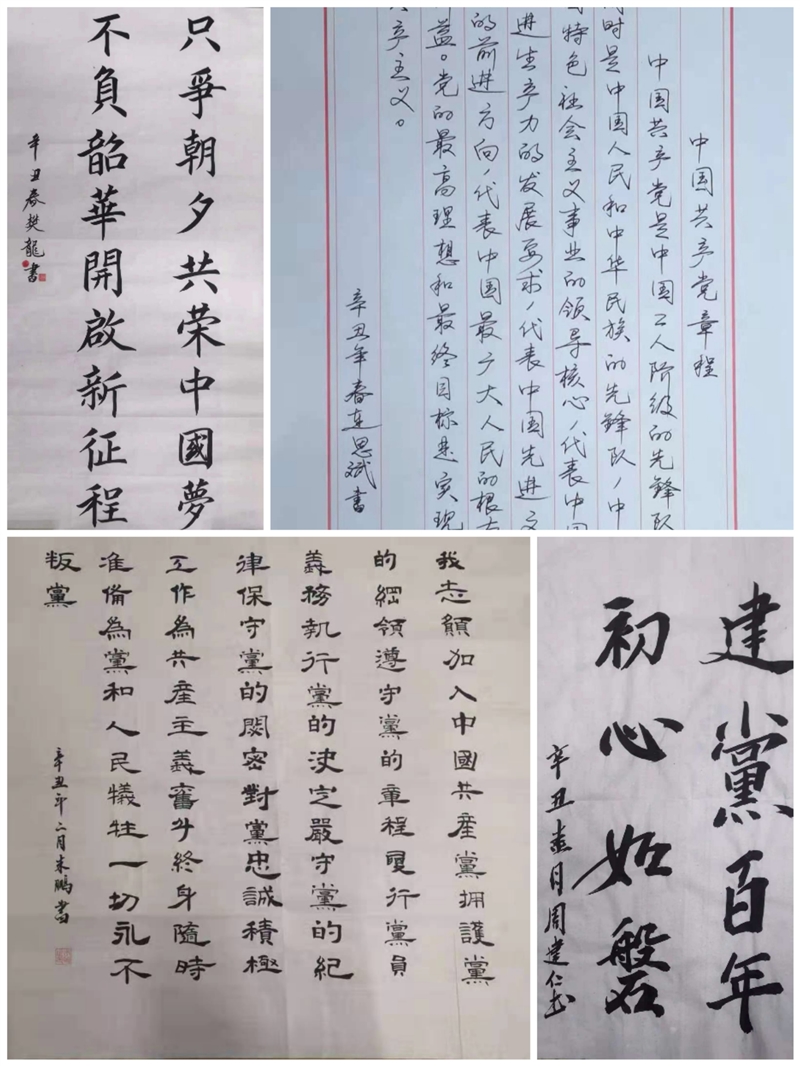 只爭朝夕共荣中國夢
不負韶華開啟新征程
辛丑春樊龍書
中国共产党章程
中国共产党是中国工人阶级的先锋队
时是中国人民和中华民族的先锋队,中
国特色社会主义事业的领导核心,代表中国
进生产力的发展要求,代表中国先进文
的前进方向,代表中国最广大人民的根本
益。党的最高理想和最终目标是实现
产主义。
辛丑年春连思斌書
我志願加入中國共産黨拥護黨
的綱領遵守黨的章程履行黨員
義務執行黨的决定嚴守黨的紀
律保守黨的秘密對黨忠誠積極
工作為共産主義奮斗終身隨時
准備為黨和人民犧牲一切永不
叛黨
辛丑年二月朱鵬書
建黨百年
初心如磐
辛丑春月周建仁书